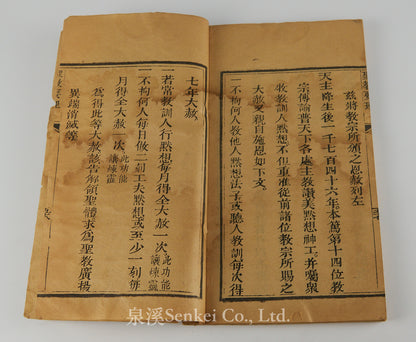 茲將教宗所頒之恩赦列左
天主降生後一千七百四十六年。本篤第十四位教
宗傳諭普天下各處主教讚美默想神工。并囑衆
牧教訓人默想不但重准從前諸位教宗所賜之
大赦又親自施恩如下文。
一不拘何人教他人默想法子或聽人教訓每次得
七年大赦。
一若常教訓人行默想每月得全大赦一次此功能讓煉靈
一不拘何人每月做二刻工夫默想或至少一刻每
月得全大赦一次此功能讓煉靈
為得此等大赦該告解領聖體求為聖教廣揚
異端消滅等
泉溪Senkei Co., Ltd.